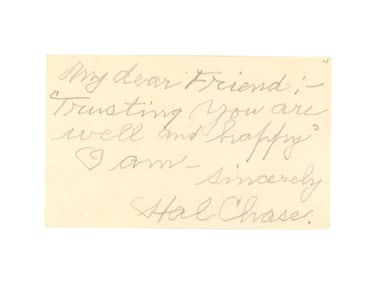 My dear Friend:-
"Trusting you are
well and happy"
I am -
Sincerely
Hal Chase.